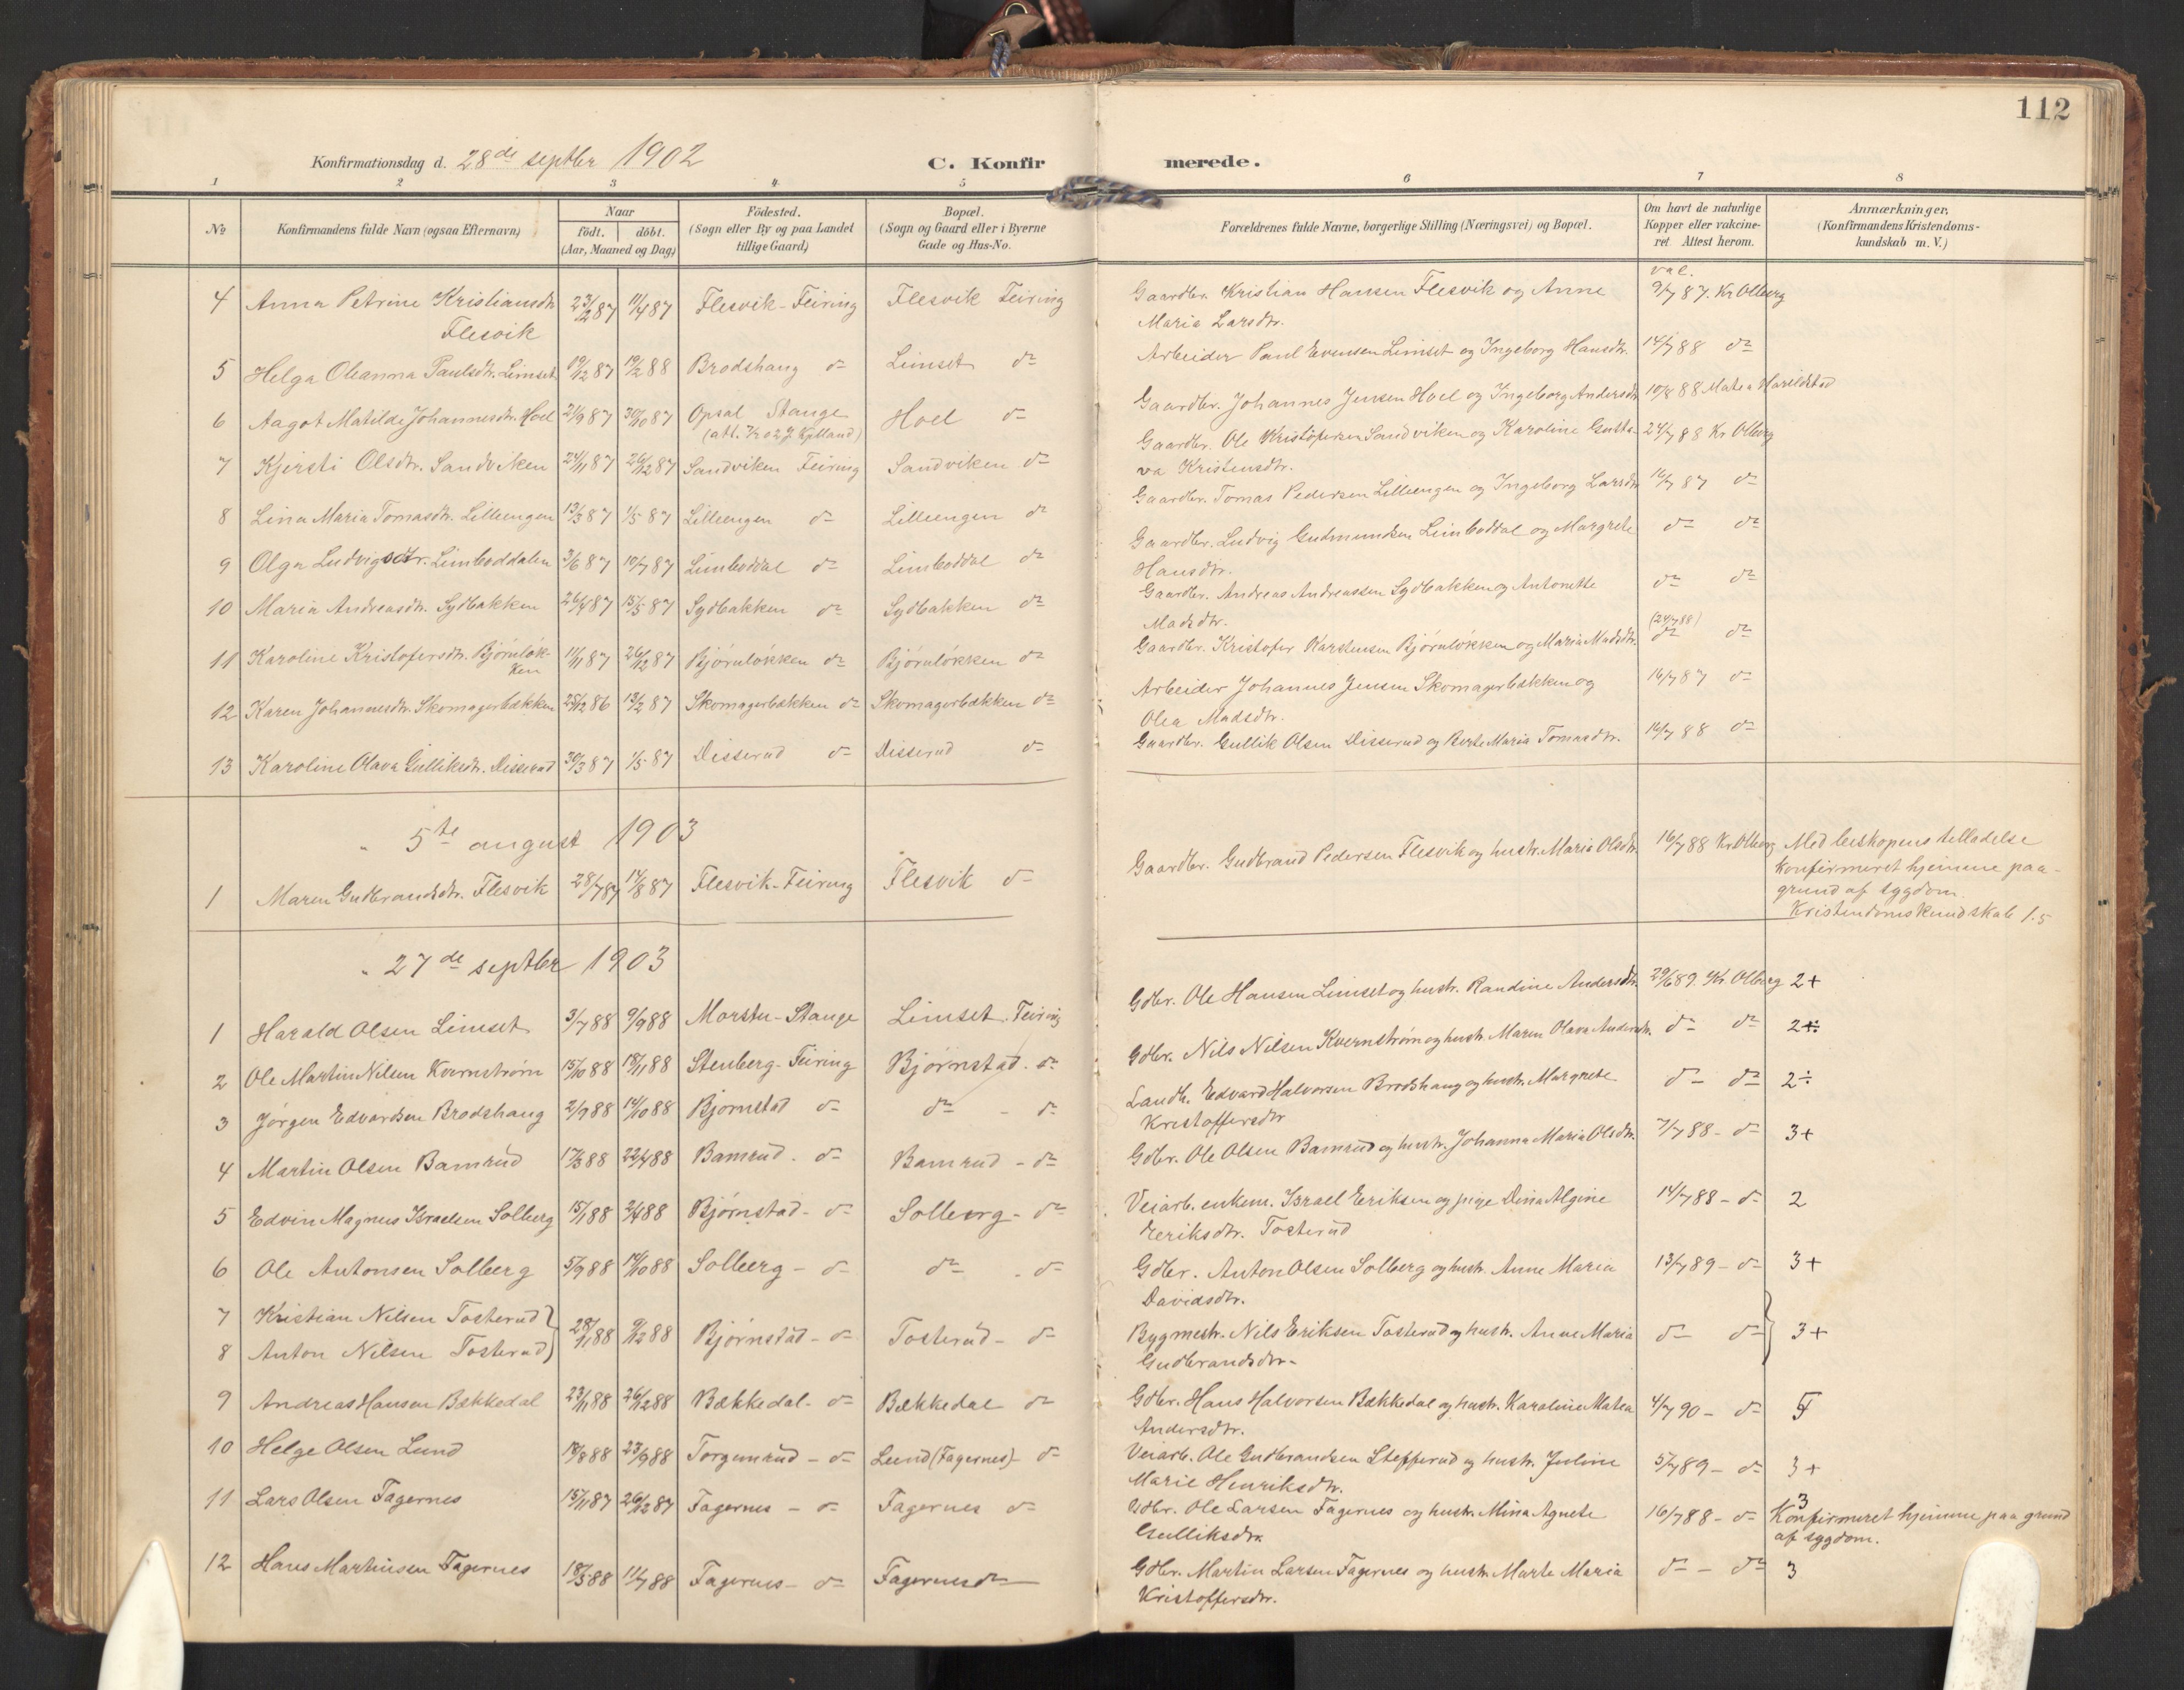 112
Konfirmationsdag d. 28de septbr 1902
C. Konfir merede.
1 2 3 4 5 6 7 8
No
Konfirmandens fulde Navn (ogsaa Efternavn)
Naar
födt. döbt.
(Aar, Maaned og Dag)
Födested.
(Sogn eller By og paa Landet
tillige Gaard)
Bopæl.
(Sogn og Gaard eller i Byerne
Gade og Hus-No.
Forældrenes fulde Navne, borgerlige Stilling (Næringsvei) og Bopæl.
Om havt de naturlige
Kopper eller vakcine-
ret Attest herom.
Anmærkninger,
(Konfirmandens Kristendoms-
kundskab m. V.)
vac.
4 Anna Petrine Kristiansdtr. 23/2 87 11/4 87 Flesvik-Feiring Flesvik Feiring Gaardbr. Kristian Hansen Flesvik og Anne 9/7 87. Kr Olberg
Flesvik Maria Larsdtr.
5 Helga Oleanna Paulsdtr. Limset 19/12 87 19/2 88 Brodshaug do Limset do Arbeider Paul Evensen Limset og Ingeborg Hansdtr. 14/7 88 do
6 Aagot Matilde Johannesdtr. Hoel 21/9 87 30/10 87 Opsal Stange Hoel do Gaardbr. Johannes Jensen Hoel og Ingeborg Andersdtr. 10/8 88 Matea Harildstad
7 Kjersti Olsdtr. Sandviken 24/11 87 26/12 87 Sandviken Feiring Sandviken do Gaardbr. Ole Kristofersen Sandviken og Karoline Gusta- 24/7 88 Kr Olberg
va Kristensdtr.
8 Lina Maria Tomasdtr. Lilleengen 13/3 87 1/5 87 Lilleengen do Lilleengen do Gaardbr. Tomas Pedersen Lilleengen og Ingeborg Larsdtr. 16/7 87 do
9 Olga Ludvigsdtr. Limboddalen 3/6 87 10/7 87 Limboddal do Limboddal do Gaardbr. Ludvig Gudmundsen Limboddal og Margrete do do
Hansdtr.
10 Maria Andreasdtr. Sydbakken 26/4 87 15/5 87 Sydbakken do Sydbakken do Gaardbr. Andreas Andreassen Sydbakken og Antonette do do
Madsdtr.
(24/7 88)
11 Karoline Kristofersdtr. Bjørnløk- 11/11 87 26/12 87 Bjørnløkken do Bjørnløkken do Gaardbr. Kristofer Karstensen Bjørnløkken og Maria Madsdtr. do do
ken
12 Karen Johannesdtr. Skomagerbakken 28/12 86 13/2 87 Skomagerbakken do Skomagerbakken do Arbeider Johannes Jensen Skomagerbakken og 16/7 87 do
Olea Madsdtr.
13 Karoline Olava Gulliksdtr. Disserud 30/3 87 1/5 87 Disserud do Disserud do Gaardbr. Gullik Olsen Disserud og Berte Maria Tomasdtr. 16/7 88 do
" 5te august 1903
1 Maren Gudbrandsdtr. Flesvik 28/7 87 14/8 87 Flesvik-Feiring Flesvik do Gaardbr. Gudbrand Pedersen Flesvik og hustr. Maria Olsdtr. 16/7 88 Kr Olberg Med biskopens tilladelse
konfirmeret hjemme paa
grund af sygdom.
Kristendomskundskab 1.5
" 27de septbr 1903
1 Harald Olsen Limset 3/7 88 9/9 88 Morstu-Stange Limset. Feiring Gdbr. Ole Hansen Limset og hustr. Randine Andersdtr. 29/6 89. Kr. Olberg 2+
2 Ole Martin Nilsen Kvernstrøm 15/10 88 18/11 88 Stenberg-Feiring Bjørnstad. do Gdbr. Nils Nilsen Kvernstrøm og hustr. Maren Olava Andersdtr. do do 2÷
3 Jørgen Edvardsen Brodshaug 2/9 88 14/10 88 Bjørnstad do do - do Landh. Edvard Halvorsen Brodshaug og hustr. Margrete do do 2÷
Kristoffersdtr
4 Martin Olsen Bamrud 17/3 88 22/4 88 Bamrud. do Bamrud - do Gdbr. Ole Olsen Bamrud og hustr. Johanna Maria Olsdtr. 7/7 88 - do 3+
5 Edvin Magnus Israelsen Solberg 15/1 88 2/4 88 Bjørnstad - do Solberg - do Veiarb. enkem. Israel Eriksen og pige Dina Algine 14/7 88 - do 2
Eriksdtr. Tosterud
6 Ole Antonsen Solberg 5/9 88 14/10 88 Solberg - do do - do Gdbr. Anton Olsen Solberg og hustr. Anne Maria 13/7 89 - do 3+
Davidsdtr.
7 Kristian Nilsen Tosterud
8 Anton Nilsen Tosterud 28/11 88 9/12 88 Bjørnstad - do Tosterud - do Bygmestr. Nils Eriksen Tosterud og hustr. Anne Maria do do 3+
Gudbrandsdtr.
9 Andreas Hansen Bækkedal 23/11 88 26/12 88 Bækkedal - do Bækkedal do Gdbr. Hans Halvorsen Bækkedal og hustr. Karoline Matea 4/7 90 - do
Andersdtr.
10 Helge Olsen Lund 18/8 88 23/9 88 Torgunrud - do Lund (Fagernes) - do Veiarb. Ole Gudbrandsen Stefferud og hustr. Juline 5/7 89 - do 3+
Marie Henriksdtr.
11 Lars Olsen Fagernes 15/11 87 26/12 87 Fagernes - do Fagernes do Gdbr. Ole Larsen Fagernes og hustr. Mina Agnete 16/7 88 - do 3
Gulliksdtr. Konfirmeret hjemme paa grund
af sygdom.
12 Hans Martinsen Fagernes 18/5 88 11/7 88 Fagernes - do Fagernes do Gdbr. Martin Larsen Fagernes og hustr. Marte Maria do - do 3
Kristoffersdtr.